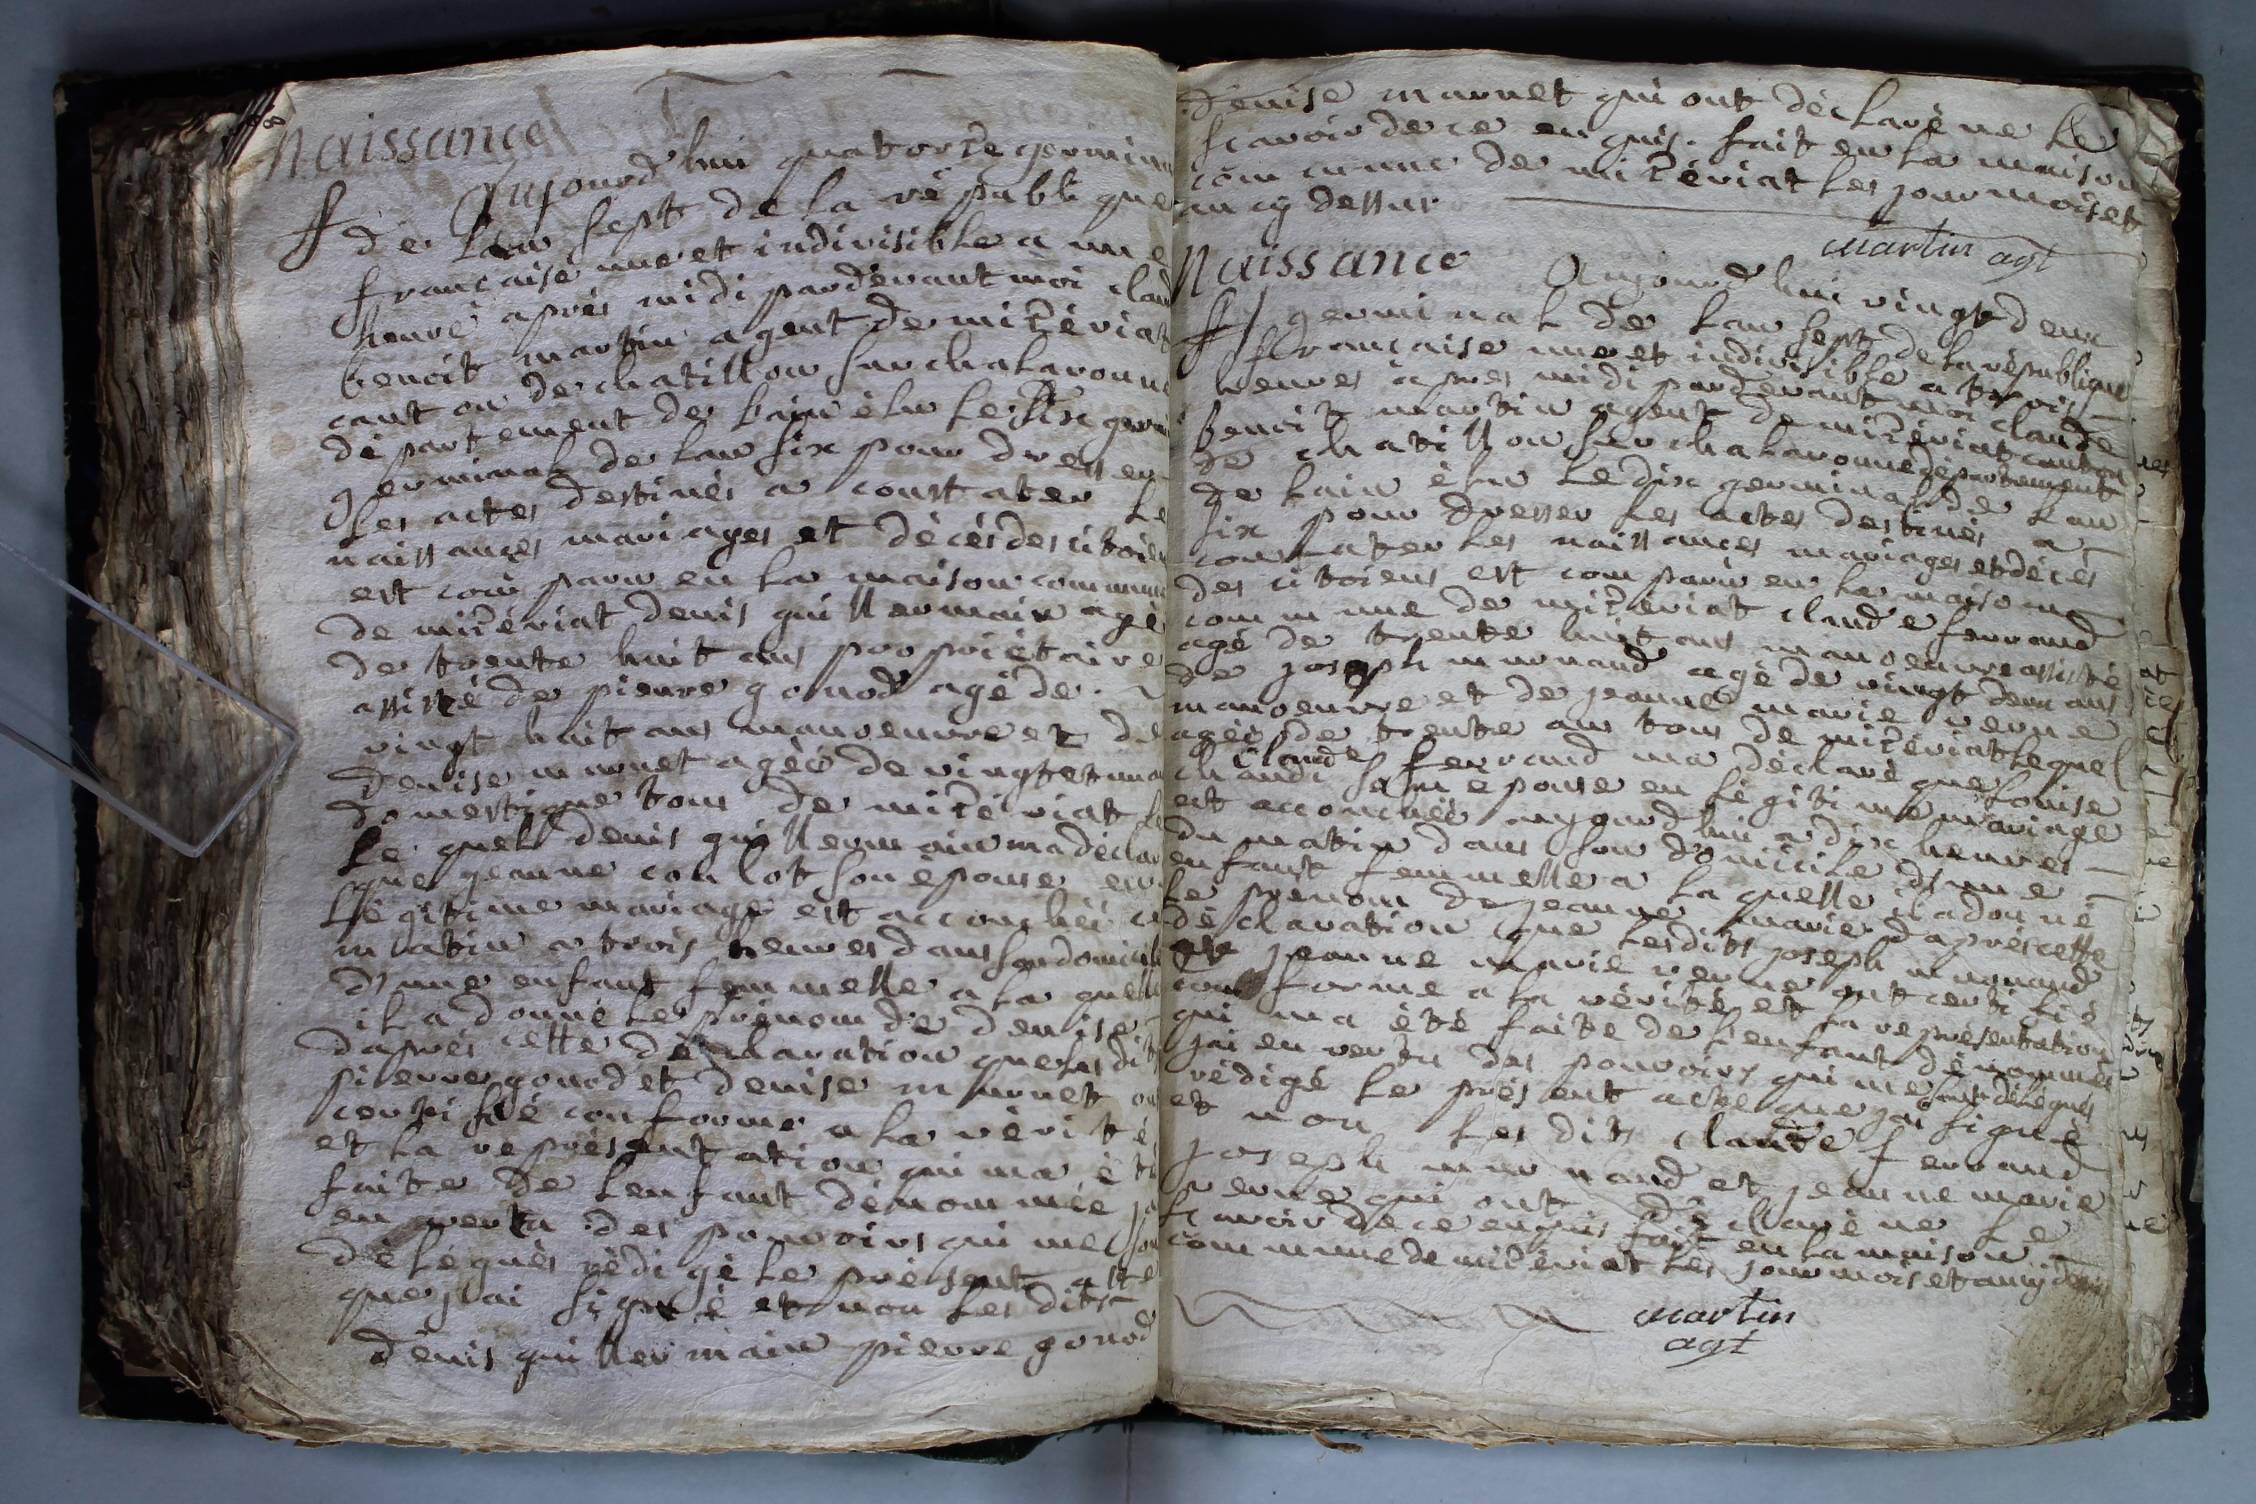 Naissance
Aujourd'hui quatorze germin
F de lan sept de la république
française une et indivisible a une
heure après midi pardevant moi claud
benoit martin agent de mizériat
canton de chatillon sur chalaronne
département de lain élu le dix germi
germinal de lan six pour dresser
les actes destinés a constater le
naissances mariages et décès des citoien
est comparu en la maison commune
de mizériat denis guillermain agé
de trente huit ans propriétaire
assisté de pierre gonod agé de
vingt huit ans manoeuvre et de
denise murnet agéé de vingt et un a
domestique tous de mizériat le
le quel denis guillermain ma déclar
que jeanne conlot son épouse en
légitime mariage est accouchéé ce
matin a trois heures dans son domicile
d'une enfant femmelle a la quelle
il a donné le prénom de denise
daprès cette déclaration que les dit
pierre gonod et denise murnet on
certifié conforme a la vérité
et la représentation qui ma été
faite de lenfant dénommée ja
en vertu des pouvoirs qui me son
délégués rédigé le présent acte
que jai signé et non les dits
denis guillermain pierre gonod
denise murnet qui ont déclaré ne le
scavoir de ce enquis. fait en la maison
commune de mizériat les jour mois et
an cy dessus
martin agt
Naissance Aujourd'hui vingt deux
F germinal de lan sept de la république
française une et indivisible a trois
heures après midi pardevant moi claude
benoit martin agent de mizériat canton
de chatillon sur chalaronne département
de lain élu le dix germinal de lan
six pour dresser les actes destinés a
constater les naissances mariages et décès
des citoiens est comparu en la maison
commune de mizériat claude ferrand
agé de trente huit ans manoeuvre assisté
de joseph murnand agé de vingt deux ans
manoeuvre et de jeanne marie verne
agéé de trente ans tous de mizériat lequel
claude ferrand ma déclaré que louise
chandi sa épouse en légitime mariage
est accouchéé aujourd'hui a dix heures
du matin dans son domicile d'une
enfant femmelle a la quelle il a donné
le prénom de jeanne marie. daprès cette
déclaration que lesdits joseph murnand
et jeanne marie verne ont certifié
conforme a la vérité et la représentation
qui ma été faite de lenfant dénommée
jai en vertu des pouvoirs qui me sont délégués
rédigé le présent acte que jai signé
et non les dits claude ferrand
joseph murnand et jeanne marie
verne qui ont déclaré ne le
scavoir de ce enquis fait en la maison
commune de mizériat les jour mois et an cy dessus
martin
agt